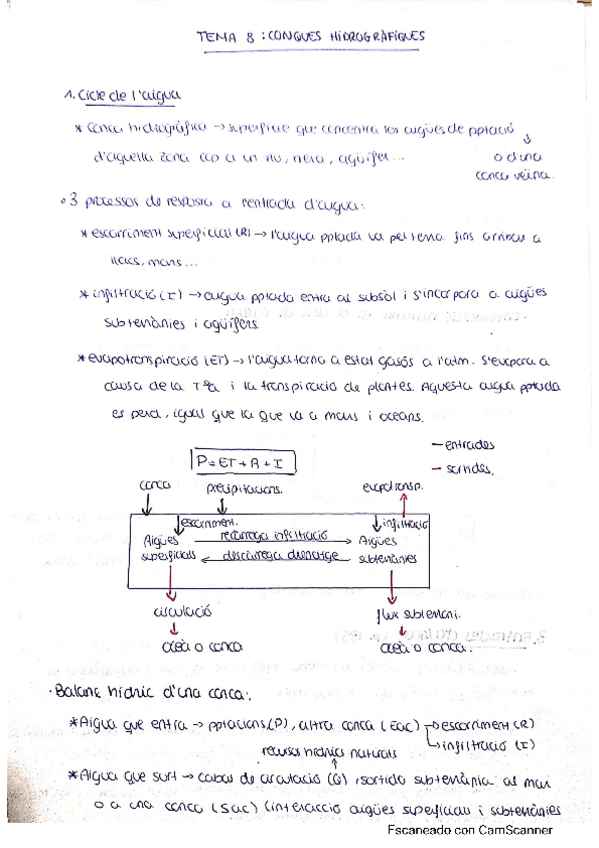 TEMA 8 : CONQUES HIDROGRÀFIQUES
1. Cicle de l'aigua
* Conca hidrogràfica → superfície que concentra les aigües de pptació
d'aquella zona cap a un riu, mera, aqüífer...
o d'una
conca veïna.
• 3 processos de resposta a l'entrada d'aigua:
* escorriment superficial (R) → l'aigua pptada va pel terra fins arribar a
llacs, mars...
* infiltració (I) → aigua pptada entra al subsòl i s'incorpora a aigües
subterrànies i aqüífers.
* evapotranspiració (ET) → l'aigua torna a estat gasós a l'atm. S'evapora a
causa de la Tªa i la transpiració de plantes. Aquesta aigua pptada
es perd, igual que la que va a mars i oceans.
P = ET + R + I
— entrades
— sortides.
conca
precipitacions.
evapotransp.
escorriment.
infiltració
Aigües
superficials
recàrrega infiltració
descàrrega drenatge
Aigües
subterrànies
circulació
flux subterrani.
oceà o conca
oceà o conca.
· Balanç hídric d'una conca:
* Aigua que entra → pptacions (P), altra conca (Eac) → escorriment (R)
→ infiltració (I)
recursos hídrics naturals
* Aigua que surt → cabal de circulació (G) i sortida subterrània al mar
o a una conca (Sac) (interacció aigües superficials i subterrànies
Escaneado con CamScanner